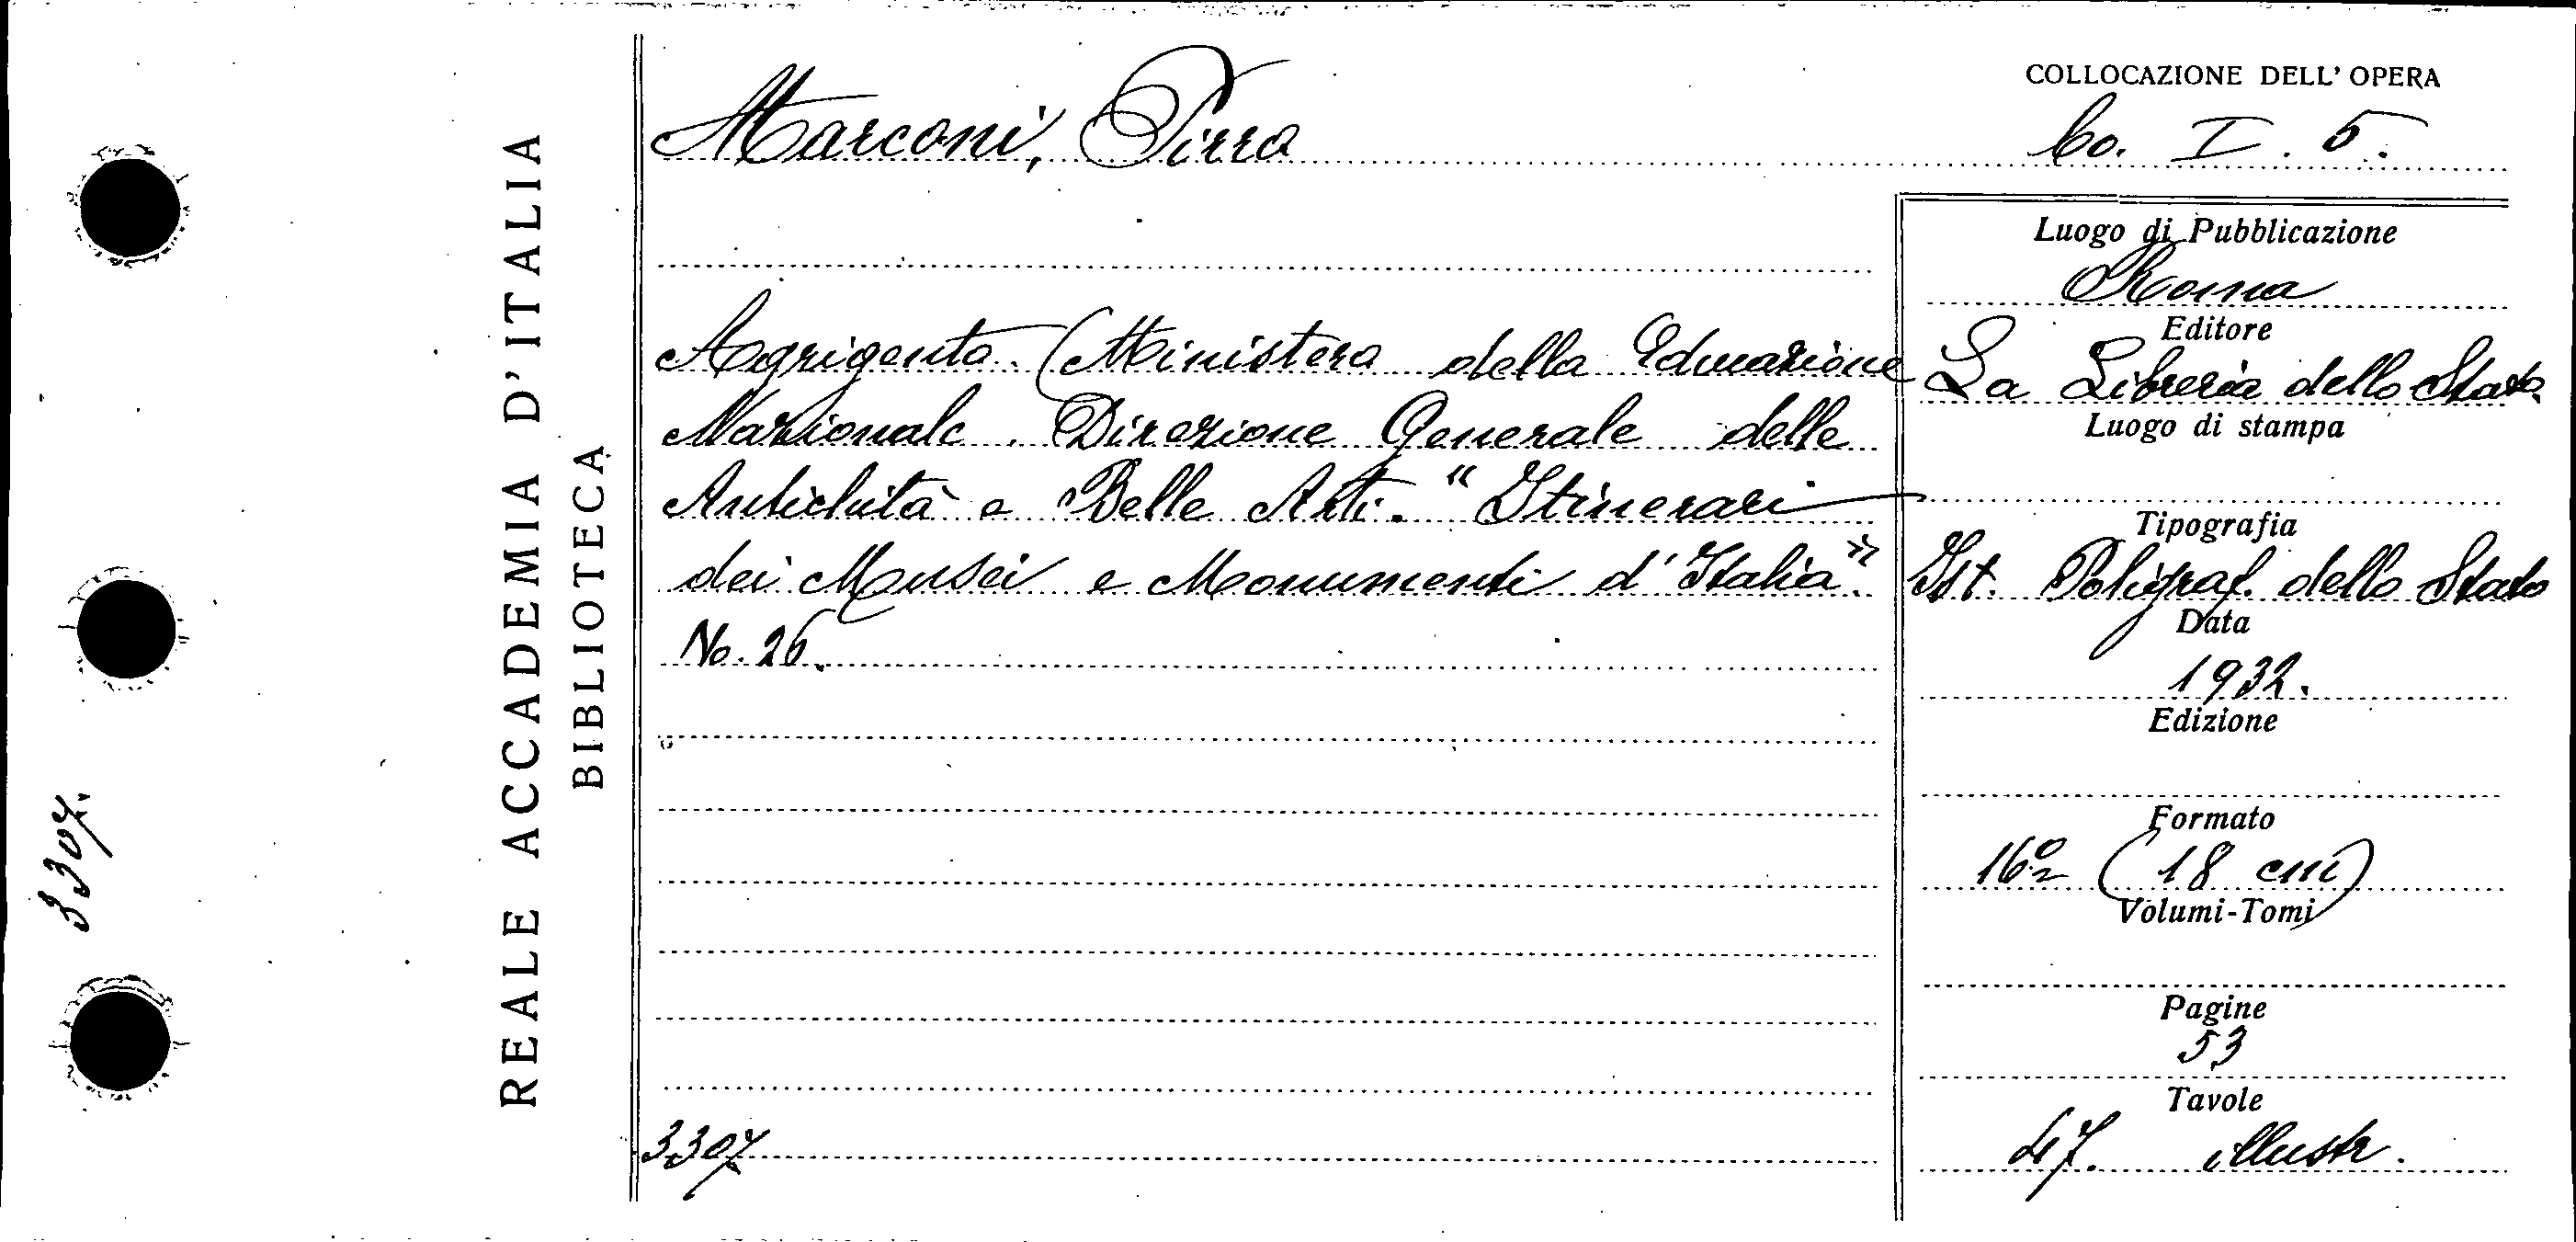 COLLOCAZIONE DELL' OPERA
Marconi, Pirro
Co. I. 5.
REALE ACCADEMIA D'ITALIA
BIBLIOTECA
3307.
Agrigento. (Ministero della Educazione
Nazionale. Direzione Generale delle
Antichità e Belle Arti. "Itinerari
dei Musei e Monumenti d'Italia".
No. 26.
3307
Luogo di Pubblicazione
Roma
Editore
La Libreria dello Stato
Luogo di stampa
Tipografia
Ist. Poligraf. dello Stato
Data
1932.
Edizione
Formato
16º (18 cm)
Volumi-Tomi
Pagine
53
Tavole
47. illustr.